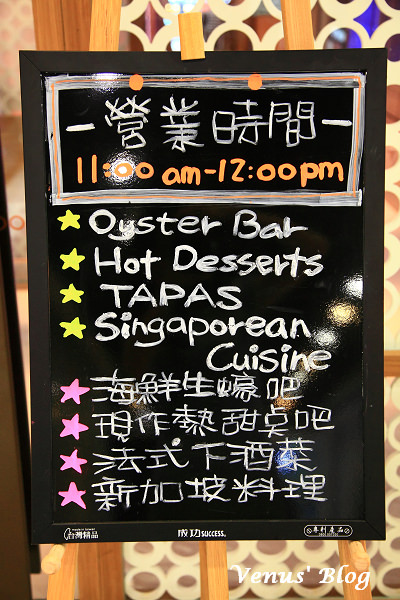 -營業時間-
11:00 am-12:00pm
Oyster Bar
Hot Desserts
TAPAS
Singaporean
Cuisine
海鮮生蠔吧
現作熱甜点吧
法式下酒菜
新加坡料理
made in taiwan
台灣精品
成功 SUCCESS.
專利產品
Venus' Blog